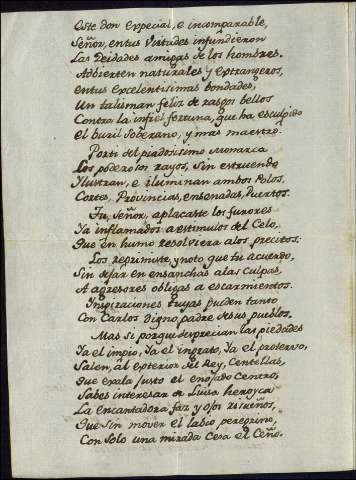 Este don especial, e incomparable,
Señor, en tus Virtudes infundieron
Las Deidades amigas de los hombres.
Advierten naturales y extrangeros,
en tus Excelentisimas bondades,
Un talisman feliz de rasgos bellos
Contra la infiel fortuna, que ha esculpido
el buril Soberano, y mas maestro.
Por ti del piadosisimo Monarca
Los poderosos rayos, Sin estruendo
Ylustran, e iluminan ambos Polos,
Cortes, Provincias, ensenadas, Puertos.
Tu, Señor, aplacaste los furores
Ya inflamados a estimulos del Celo,
Que en humo resolviera a los precitos:
Los reprimiste, y noto que tu acuerdo,
Sin dejar en ensanchas a las Culpas,
A agresores obligas a escarmientos.
Ynspiraciones tuyas pueden tanto
Con Carlos digno padre de sus pueblos.
Mas si porque desprecian las piedades
Ya el impio, Ya el ingrato, Ya el protervo,
Salen, al exterior del Rey, Centellas,
Que exala justo el enojado Centro,
Sabes interesar de Luisa heroyca
La encantadora faz y ojos risueños,
Que Sin mover el labio peregrino,
Con Solo una mirada Cesa el Ceño.